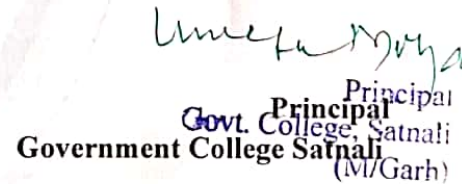 Principal
Principal
Govt. College, Satnali
Government College Satnali
(M/Garh)